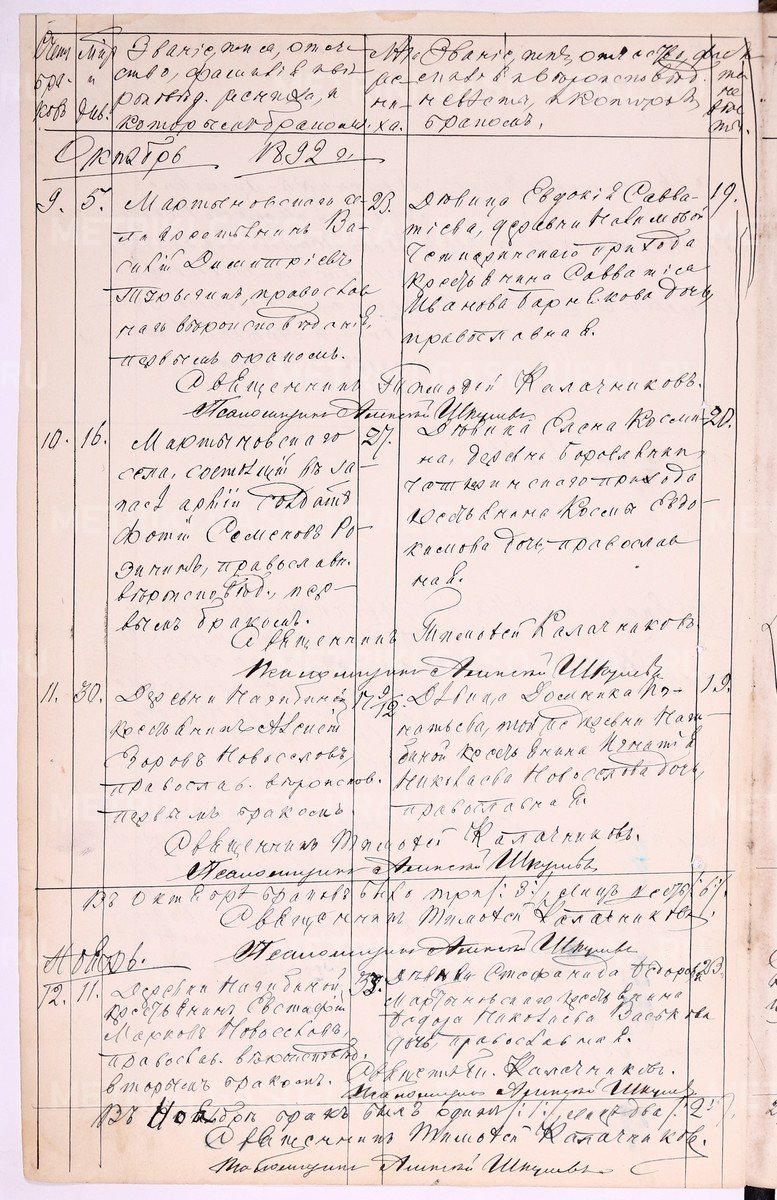 Счет браков
Мѣс. и день.
Званіе, имя, отче-
ство, фамилія и вѣ-
роисповѣд. жениха, и
которымъ бракомъ.
Лѣта
же-
ни-
ха.
Званіе, имя, отчество, фа-
милія и вѣроисповѣд.
невѣсты, и которымъ
бракомъ.
Лѣта
не-
вѣс-
ты.
Октябрь 1892 г.
9. 5.
Мартыновскаго се-
ла крестьянинъ Ва-
силій Димитріевъ
православ-
наго вѣроисповѣданія,
первымъ бракомъ.
23.
Дѣвица Евдокія Савва-
тіева, деревни
прихода
крестьянина Савватія
Иванова дочь,
православная.
19.
Священникъ Тимофей Калачниковъ.
Псаломщикъ Алексѣй Шкулевъ
10. 16.
Мартыновскаго
села, состоящій въ за-
пасѣ арміи солдатъ
Фотій Семеновъ Ро-
православн.
вѣроисповѣд., пер-
вымъ бракомъ.
27.
Дѣвица Елена Косми-
на, деревни
прихода
крестьянина Космы Евдо-
кимова дочь, православ-
ная.
20.
Священникъ Тимофей Калачниковъ.
Псаломщикъ Алексѣй Шкулевъ
11. 30.
Деревни
крестьянинъ Алексѣй
Новоселовъ,
православ. вѣроисповѣд.
первымъ бракомъ.
17 9/12
Дѣвица Домника Иг-
натьева, той же деревни
крестьянина Игнатія
Николаева Новоселова дочь,
православная.
19.
Священникъ Тимофей Калачниковъ.
Псаломщикъ Алексѣй Шкулевъ
Въ Октябрѣ браковъ было три /:3:/, лицъ шесть /:6:/.
Священникъ Тимофей Калачниковъ.
Псаломщикъ Алексѣй Шкулевъ
Ноябрь.
12. 11.
Деревни
крестьянинъ Евстафій
Марковъ Новоселовъ,
православ. вѣроисповѣд.
вторымъ бракомъ.
33.
Дѣвица Стефанида Ѳедорова
Мартыновскаго крестьянина
Ѳедора Николаева Васькова
дочь, православная.
23.
Священн. Калачниковъ.
Псаломщикъ Алексѣй Шкулевъ
Въ Ноябрѣ бракъ былъ одинъ /:1:/, лицъ два /:2:/.
Священникъ Тимофей Калачниковъ.
Псаломщикъ Алексѣй Шкулевъ